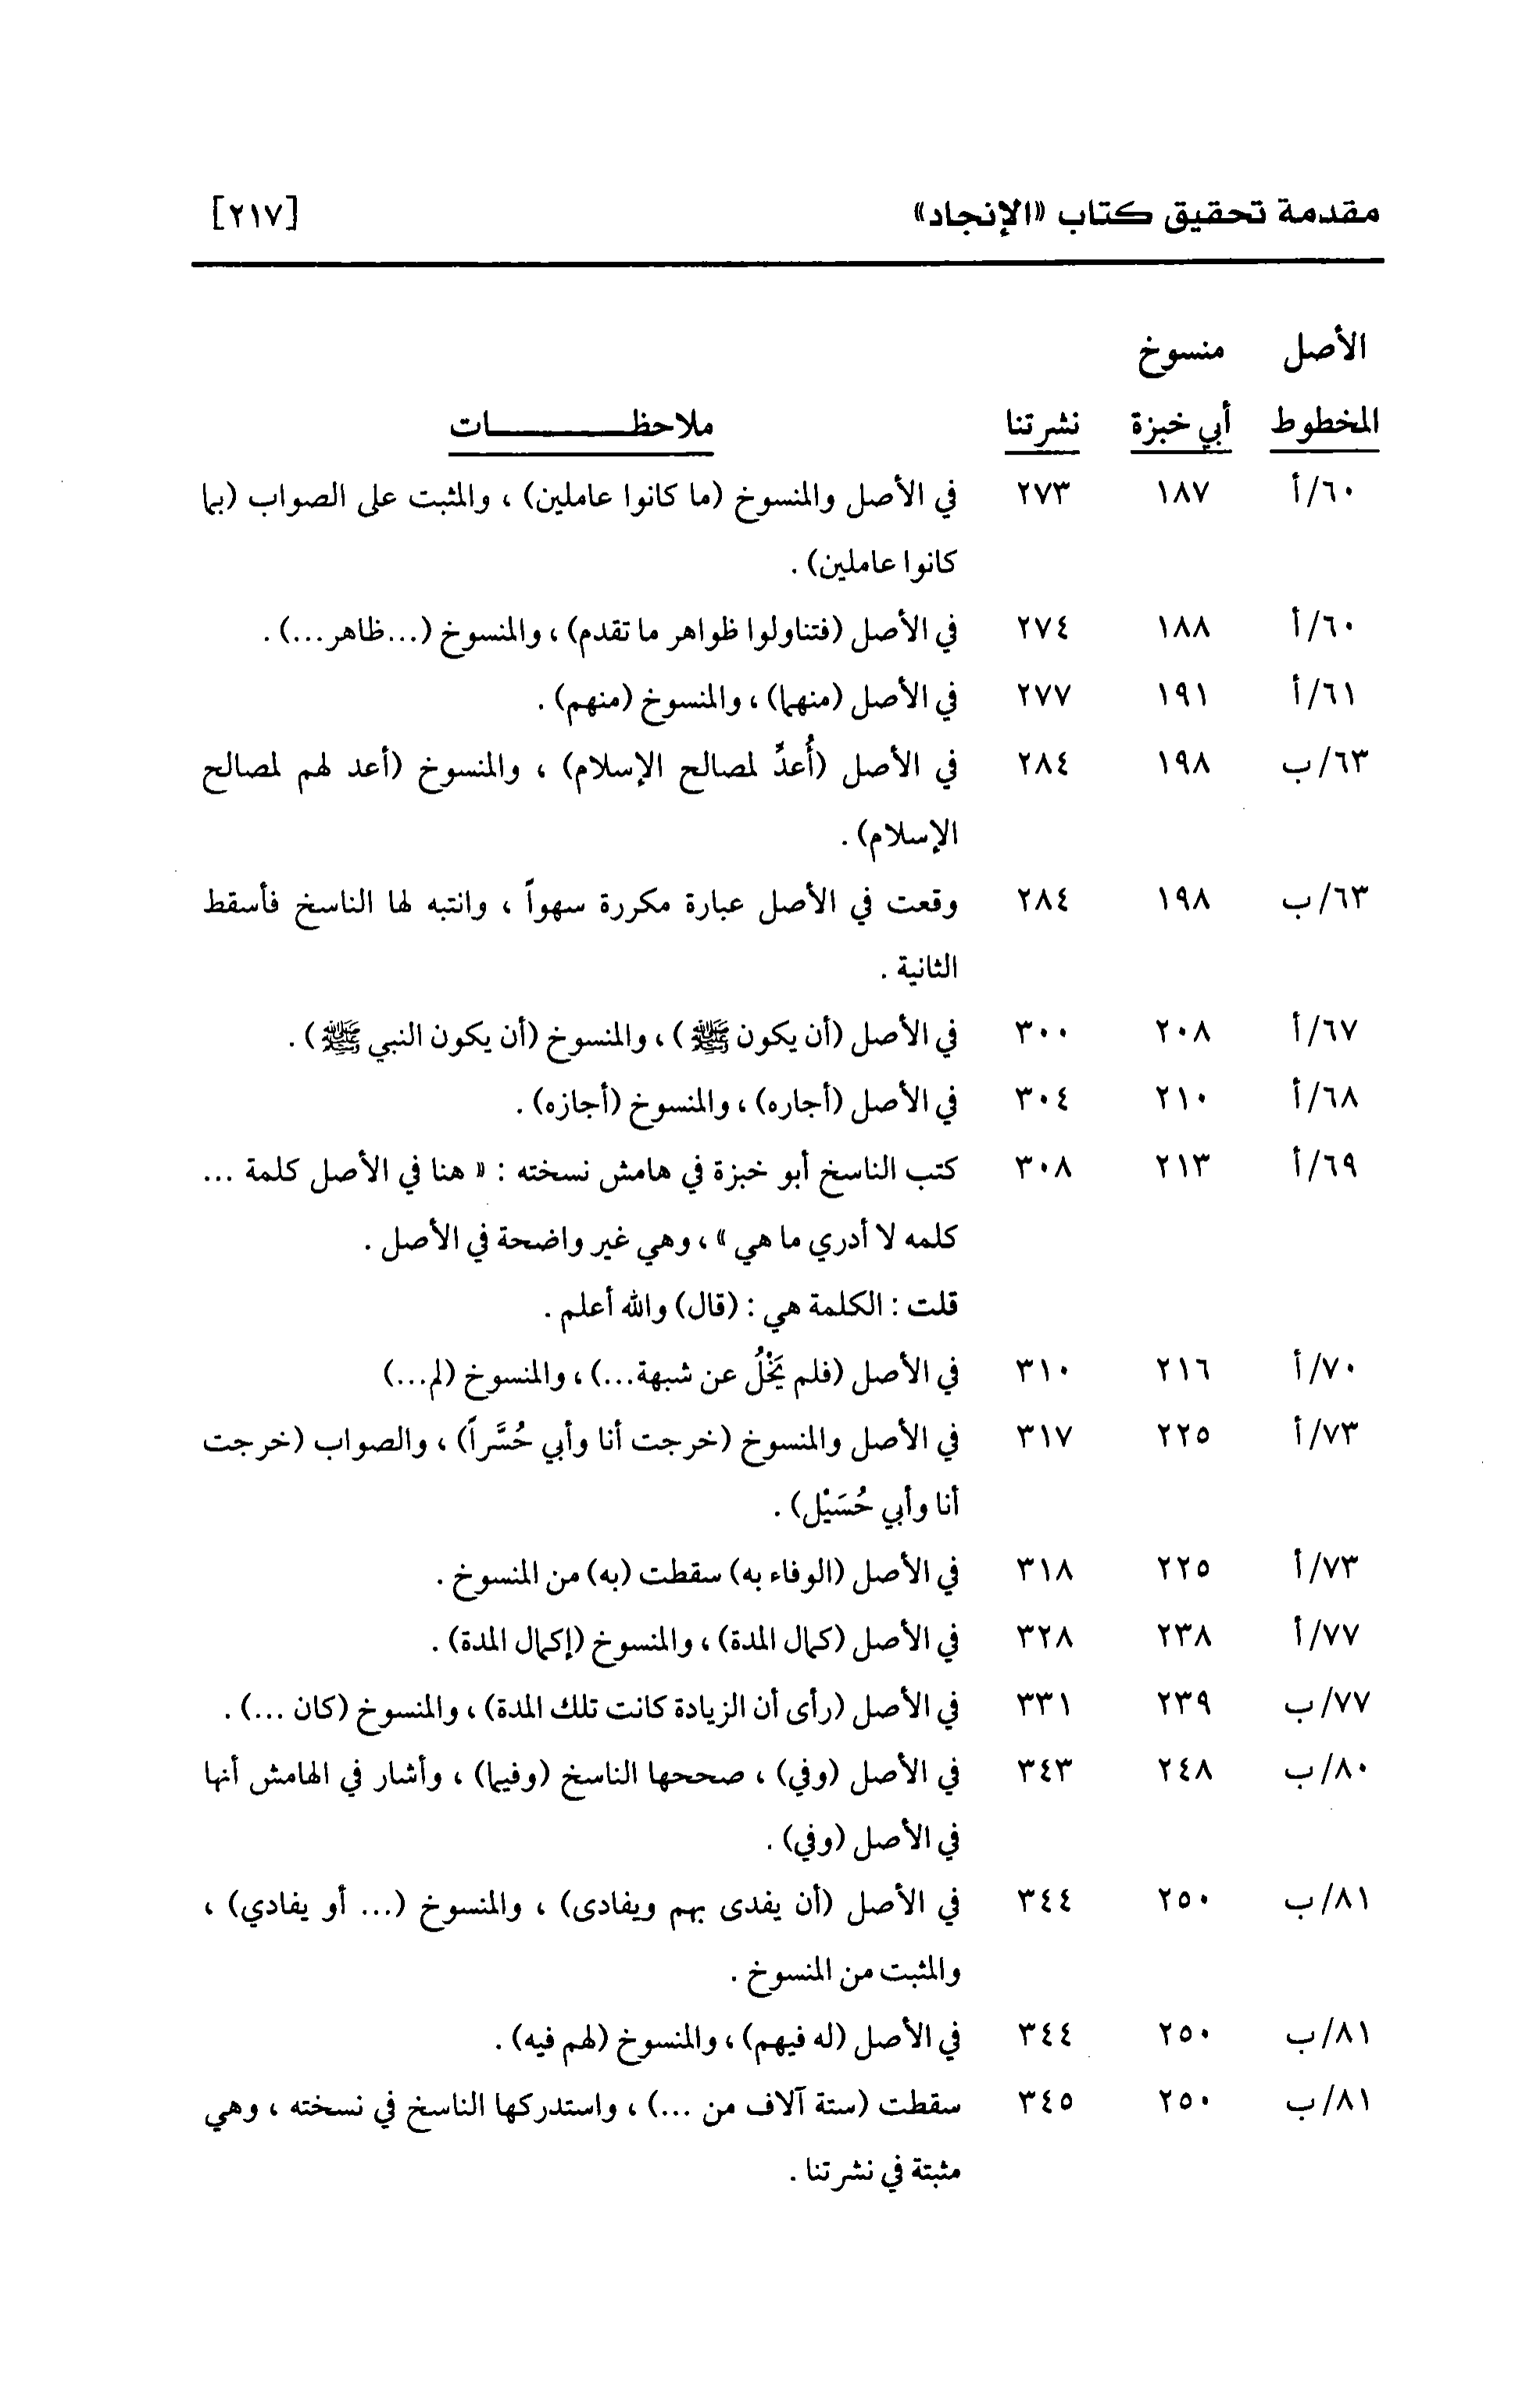 مقدمة تحقيق كتاب «الإنجاد» [٢١٧]
الأصل منسوخ
المخطوط أبي خبزة نشرتنا ملاحظـــــــــات
٦٠/أ ١٨٧ ٢٧٣ في الأصل والمنسوخ (ما كانوا عاملين) ، والمثبت على الصواب (بما
كانوا عاملين) .
٦٠/أ ١٨٨ ٢٧٤ في الأصل (فتناولوا ظواهر ما تقدم) ، والمنسوخ (...ظاهر...) .
٦١/أ ١٩١ ٢٧٧ في الأصل (منهما) ، والمنسوخ (منهم) .
٦٣/ب ١٩٨ ٢٨٤ في الأصل (أُعدَّ لمصالح الإسلام) ، والمنسوخ (أعد لهم لمصالح
الإسلام) .
٦٣/ب ١٩٨ ٢٨٤ وقعت في الأصل عبارة مكررة سهواً ، وانتبه لها الناسخ فأسقط
الثانية .
٦٧/أ ٢٠٨ ٣٠٠ في الأصل (أن يكون ﷺ) ، والمنسوخ (أن يكون النبي ﷺ) .
٦٨/أ ٢١٠ ٣٠٤ في الأصل (أجاره) ، والمنسوخ (أجازه) .
٦٩/أ ٢١٣ ٣٠٨ كتب الناسخ أبو خبزة في هامش نسخته : « هنا في الأصل كلمة ...
كلمه لا أدري ما هي » ، وهي غير واضحة في الأصل .
قلت : الكلمة هي : (قال) والله أعلم .
٧٠/أ ٢١٦ ٣١٠ في الأصل (فلم يَخْلُ عن شبهة...) ، والمنسوخ (لم...)
٧٣/أ ٢٢٥ ٣١٧ في الأصل والمنسوخ (خرجت أنا وأبي حُسَّراً) ، والصواب (خرجت
أنا وأبي حُسَيْل) .
٧٣/أ ٢٢٥ ٣١٨ في الأصل (الوفاء به) سقطت (به) من المنسوخ .
٧٧/أ ٢٣٨ ٣٢٨ في الأصل (كمال المدة) ، والمنسوخ (إكمال المدة) .
٧٧/ب ٢٣٩ ٣٣١ في الأصل (رأى أن الزيادة كانت تلك المدة) ، والمنسوخ (كان ...) .
٨٠/ب ٢٤٨ ٣٤٣ في الأصل (وفي) ، صححها الناسخ (وفيما) ، وأشار في الهامش أنها
في الأصل (وفي) .
٨١/ب ٢٥٠ ٣٤٤ في الأصل (أن يفدى بهم ويفادى) ، والمنسوخ (... أو يفادي) ،
والمثبت من المنسوخ .
٨١/ب ٢٥٠ ٣٤٤ في الأصل (له فيهم) ، والمنسوخ (لهم فيه) .
٨١/ب ٢٥٠ ٣٤٥ سقطت (ستة آلاف من ...) ، واستدركها الناسخ في نسخته ، وهي
مثبتة في نشرتنا .